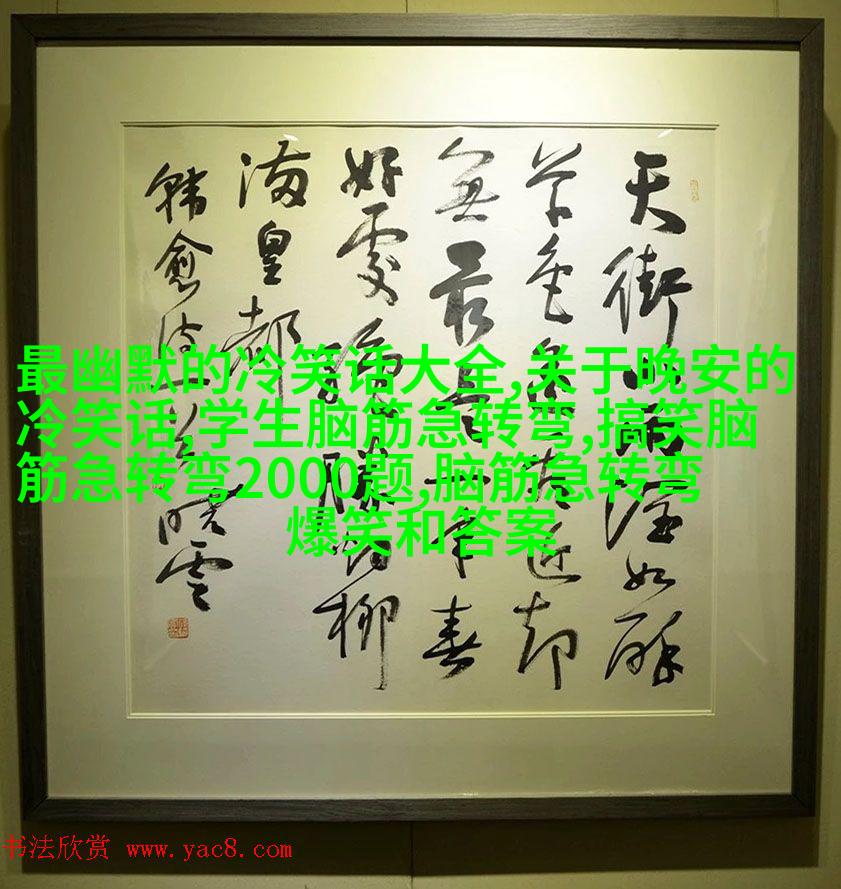 天街小雨润如酥
草色遥看近却
無最是一年春
好處绝勝烟柳
满皇都
韩愈诗
最幽默的冷笑话大全,关于晚安的
冷笑话,学生脑筋急转弯,搞笑脑
筋急转弯2000题,脑筋急转弯
爆笑和答案
书法欣赏 www.yac8.com